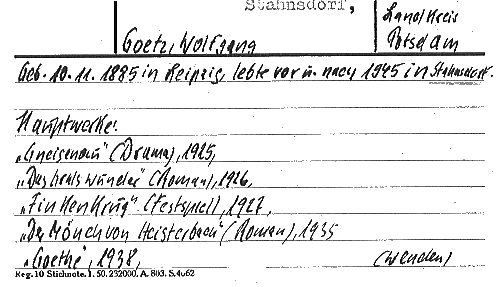 Stahnsdorf,
Landkreis
Goetz, Wolfgang
Potsdam
Geb. 10.11.1885 in Leipzig, lebte vor u. nach 1945 in Stahnsdorf.
Hauptwerke:
„Gneisenau" (Drama), 1925,
„Das Gralswunder" (Roman), 1926,
„Finkenkrug" (Festspiel), 1927,
„Der Mönch von Heisterbach" (Roman), 1935
„Goethe", 1938, (wenden)
Reg. 10 Stichnote. I. 50. 232000. A. 803. S. 4062